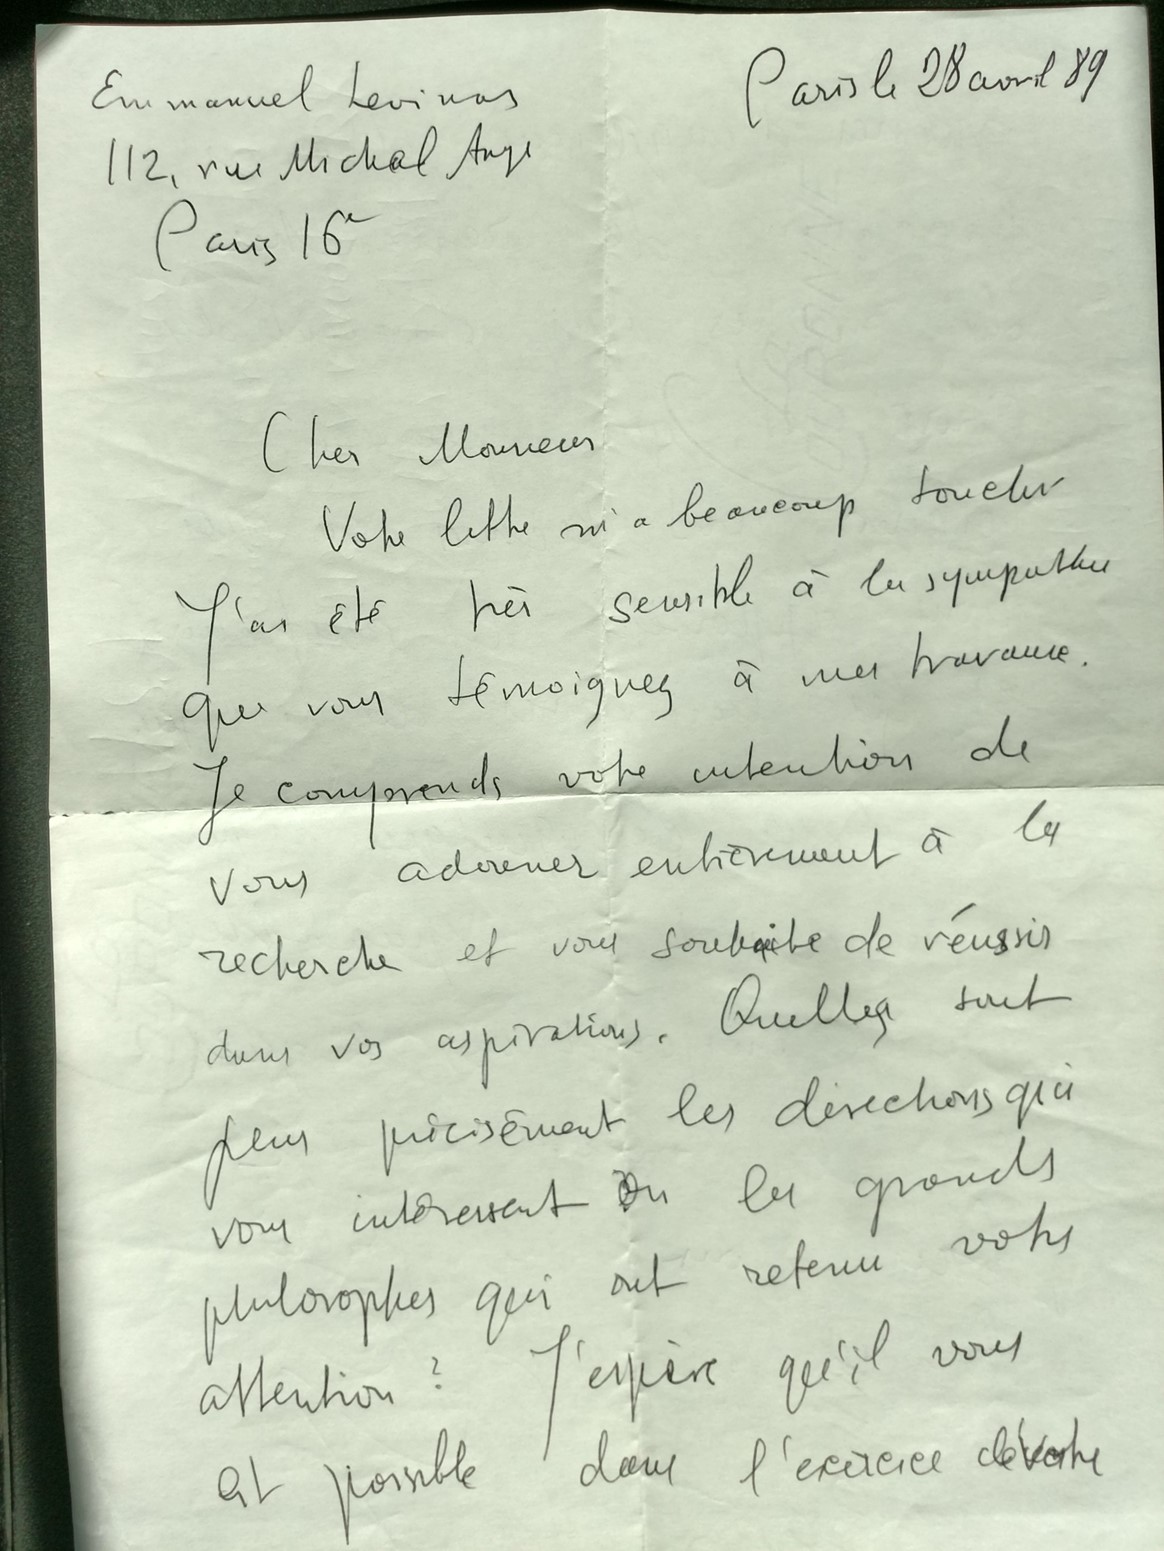 Emmanuel Levinas
Paris le 28 avril 89
112, rue Michel Ange
Paris 16e
Cher Monsieur
Votre lettre m'a beaucoup toucher
J'ai été très sensible à la sympathie
que vous témoignez à mes travaux.
Je comprends votre intention de
vous adonner entièrement à la
recherche et vous souhaite de réussir
dans vos aspirations. Quelles sont
plus précisément les directions qui
vous intéressent ou les grands
philosophes qui ont retenu votre
attention ? J'espère qu'il vous
est possible dans l'exercice de votre